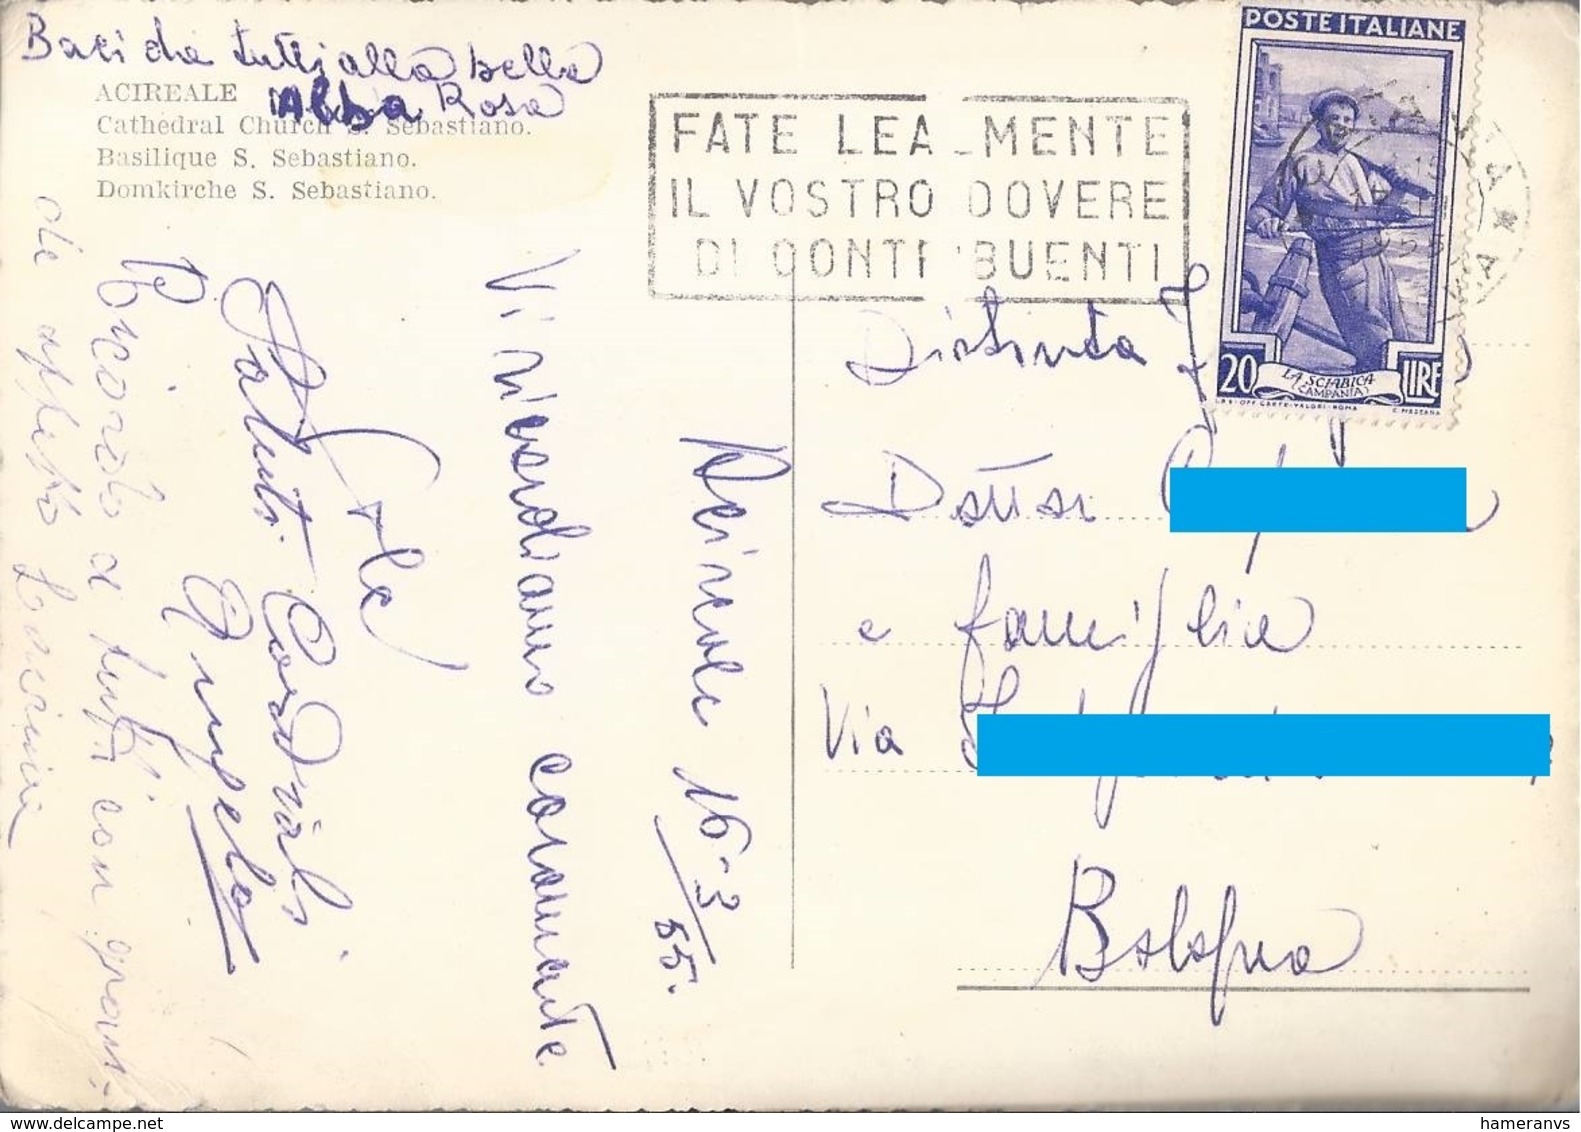 Baci da tutti alla bella
Alba Rosa
ACIREALE
Cathedral Church S. Sebastiano.
Basilique S. Sebastiano.
Domkirche S. Sebastiano.
FATE LEALMENTE
IL VOSTRO DOVERE
DI CONTRIBUENTI
POSTE ITALIANE
20 LIRE
LA SCIABICA
(CAMPANIA)
I.P.S. OFF. CARTE-VALORI-ROMA
C. MEZZANA
1955
Acireale 16-3/55.
Vi ricordiamo caramente
Saluti Cordiali
Angelo
Vi ricordo a tutti con grande
affetto
Distinta
Dott.ssa
e famiglia
Via
Bologna
delcampe.net
hameranvs